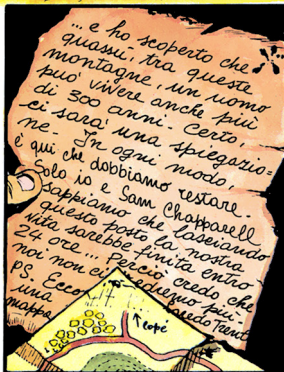 ... e ho scoperto che
quassù, tra queste
montagne, un uomo
può vivere anche più
di 300 anni - Certo,
ci sarà una spiegazio=
ne - In ogni modo,
è qui che dobbiamo restare.
Solo io e Sam Chapparell
sappiamo che lasciando
questo posto la nostra
vita sarebbe finita entro
24 ore ... Perciò credo che
noi non ci vedremo più.
PS. Ecco
una
mappa